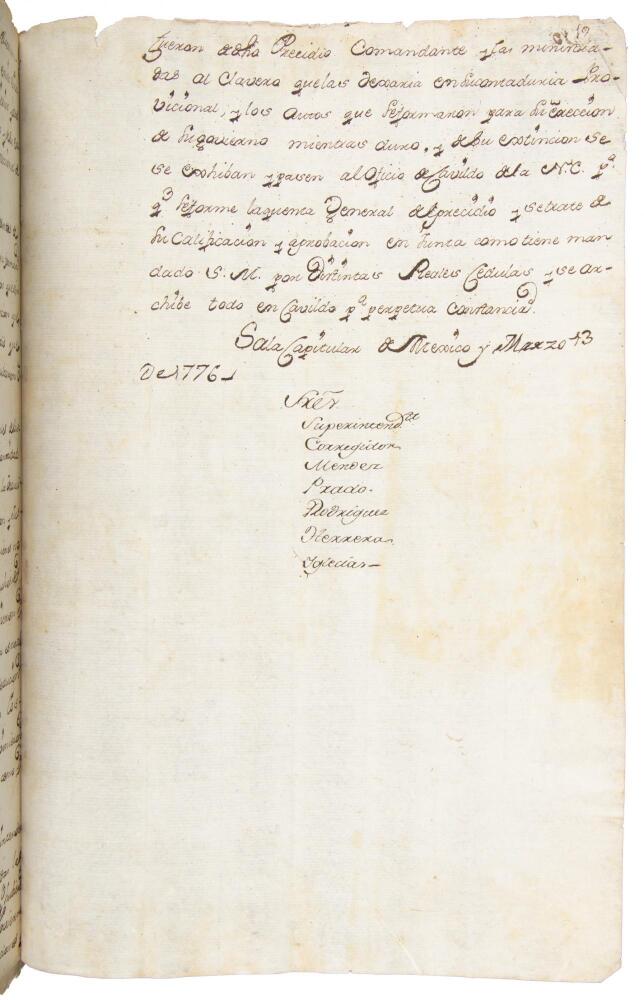 19
fueron de dho Precidio Comandante y las ministra-
das al Clavero que las dexaria en su contaduria Pro-
vicional, y los autos que se formaron para su ereccion
de su govierno mientras duro, y de su extincion se
se exhiban y pasen al Oficio de Cavildo de la N.C. pa.
q.e se forme la quenta General del precidio y se trate de
su Calificacion y aprobacion en Junta como tiene man-
dado S. M. por Distintas Reales Cedulas y se ar-
chibe todo en Cavildo pa. perpetua constancia.
Sala Capitular de Mexico y Marzo 13
De 1776
Sres.
Superintendte
Corregidor
Mendez
Prado.
Rodriguez
Herrera
Yglecias